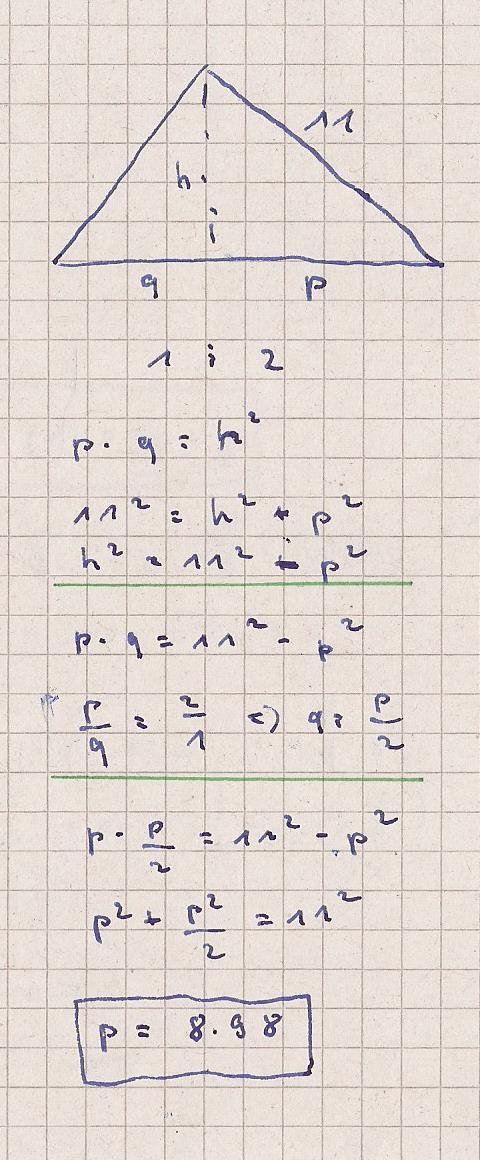 11
h
q p
1 : 2
p · q = h²
11² = h² + p²
h² = 11² - p²
p · q = 11² - p²
p/q = 2/1 => q = p/2
p · p/2 = 11² - p²
p² + p²/2 = 11²
p = 8.98